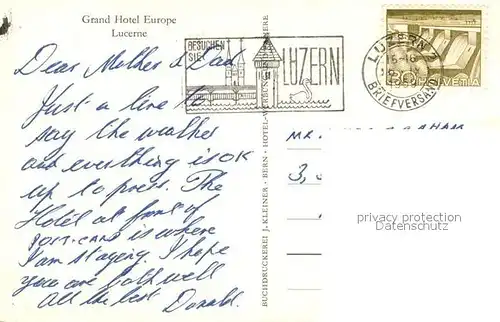 Grand Hotel Europe
Lucerne
BESUCHEN
SIE
LUZERN
LUZERN 2
15-16
1959
BRIEFVERSAND
30
HELVETIA
Dear Mother & Dad
Just a line to
say the weather
and everything is OK
up to press. The
Hotel at front of
POST-CARD is where
I am staying. I hope
you are both well
All the best Donald.
BUCHDRUCKEREI J. KLEINER - BERN - HOTEL-WERBUNG
MR.
3,
privacy protection
Datenschutz